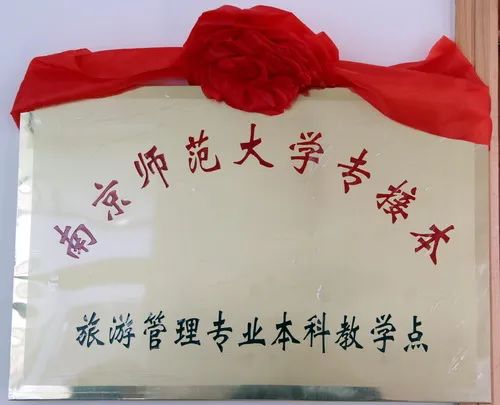 南京师范大学专接本
旅游管理专业本科教学点